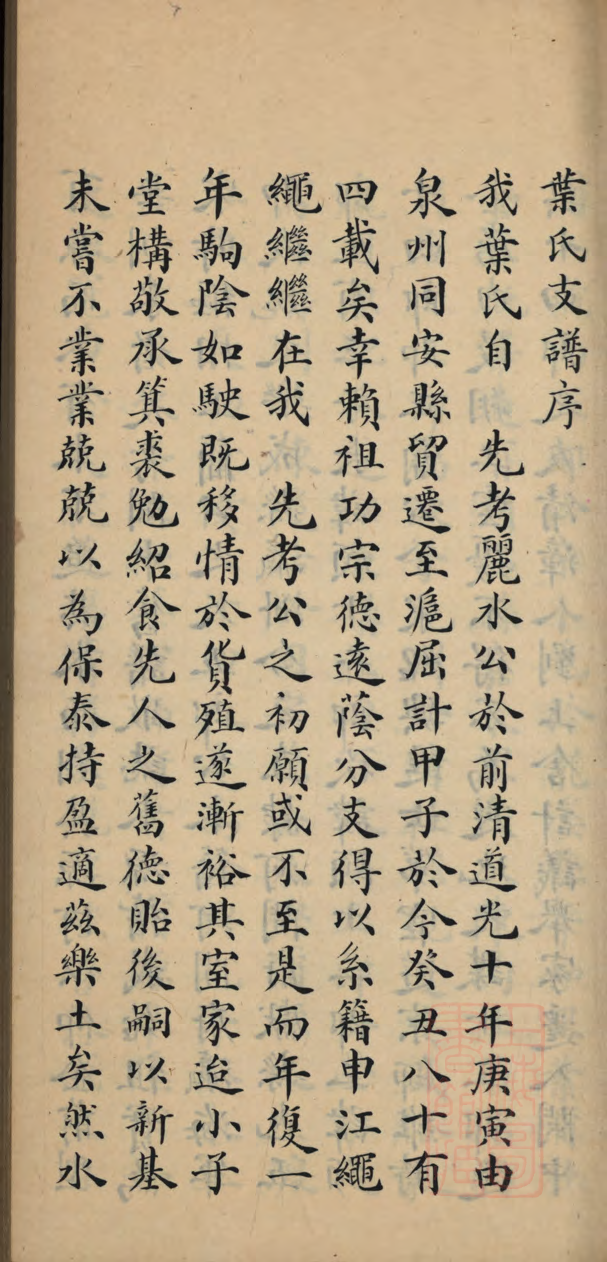 葉氏支譜序
我葉氏自　先考麗水公於前清道光十年庚寅由
泉州同安縣貿遷至滬屈計甲子於今癸丑八十有
四載矣幸賴祖功宗德遠蔭分支得以系籍申江繩
繩繼繼在我　先考公之初願或不至是而年復一
年駒陰如駛既移情於貨殖遂漸裕其室家迨小子
堂構敬承箕裘勉紹食先人之舊德貽後嗣以新基
未嘗不業業兢兢以為保泰持盈適茲樂土矣然水